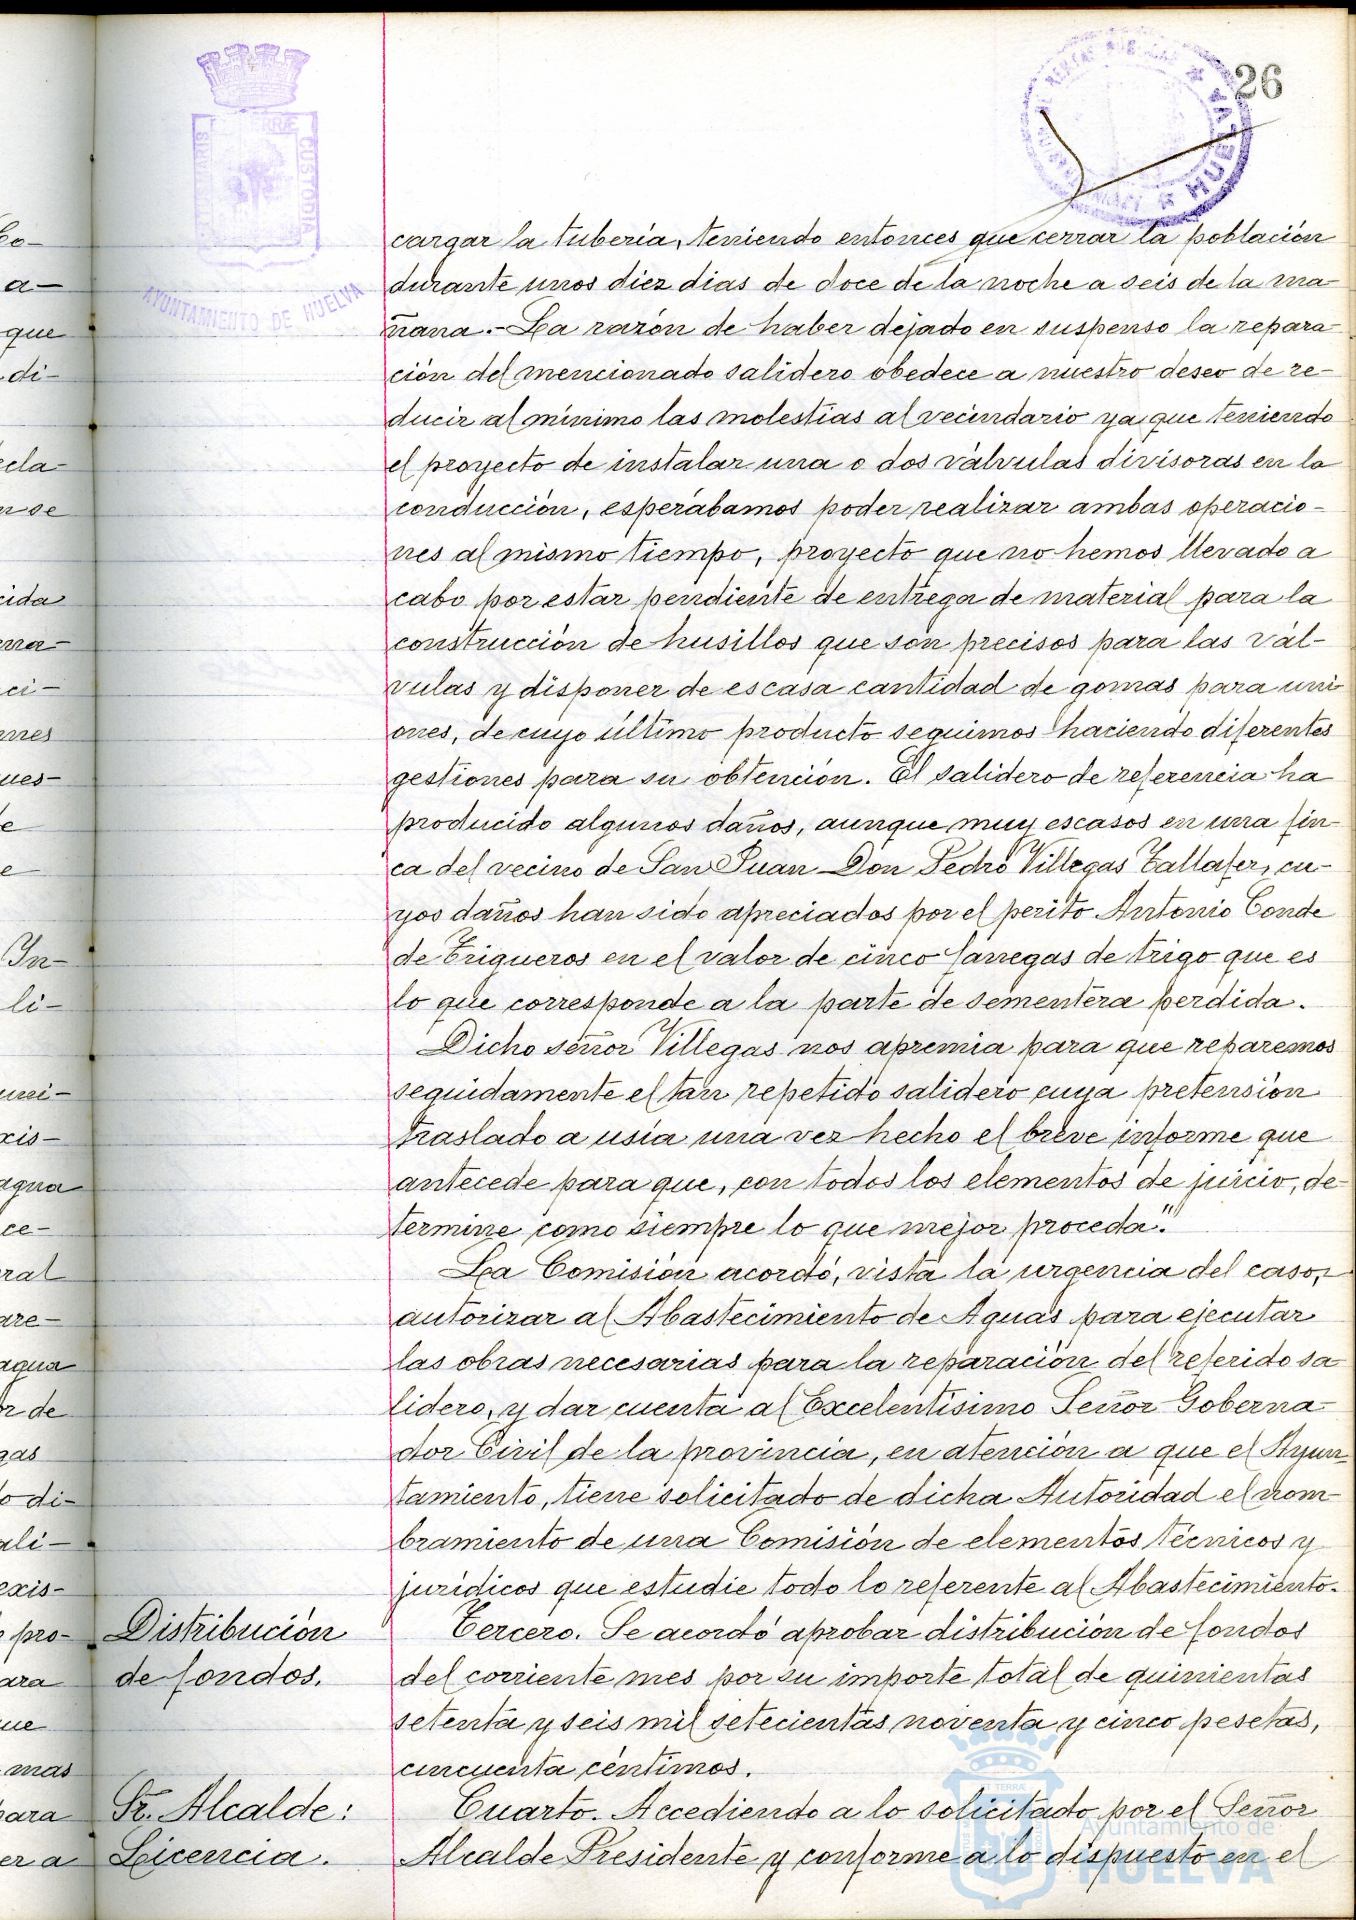 26
PORTUS MARIS ET TERRÆ CUSTODIA
AYUNTAMIENTO DE HUELVA
HUELVA
cargar la tubería, teniendo entonces que cerrar la población
durante unos diez dias de doce de la noche a seis de la ma-
ñana.- La razón de haber dejado en suspenso la repara-
ción del mencionado salidero obedece a nuestro deseo de re-
ducir al mínimo las molestias al vecindario ya que teniendo
el proyecto de instalar una o dos válvulas divisoras en la
conducción, esperábamos poder realizar ambas operacio-
nes al mismo tiempo, proyecto que no hemos llevado a
cabo por estar pendiente de entrega de material para la
construcción de husillos que son precisos para las vál-
vulas y disponer de escasa cantidad de gomas para uni-
ones, de cuyo último producto seguimos haciendo diferentes
gestiones para su obtención. El salidero de referencia ha
producido algunos daños, aunque muy escasos en una fin-
ca del vecino de San Juan Don Pedro Villegas Tallafer, cu-
yos daños han sido apreciados por el perito Antonio Conde
de Trigueros en el valor de cinco fanegas de trigo que es
lo que corresponde a la parte de sementera perdida.
Dicho señor Villegas nos apremia para que reparemos
seguidamente el tan repetido salidero cuya pretensión
traslado a usía una vez hecho el breve informe que
antecede para que, con todos los elementos de juicio, de-
termine como siempre lo que mejor proceda."
La Comisión acordó, vista la urgencia del caso,
autorizar al Abastecimiento de Aguas para ejecutar
las obras necesarias para la reparación del referido sa-
lidero, y dar cuenta al Excelentísimo Señor Goberna-
dor Civil de la provincia, en atención a que el Ayun-
tamiento, tiene solicitado de dicha Autoridad el nom-
bramiento de una Comisión de elementos técnicos y
jurídicos que estudie todo lo referente al Abastecimiento.
Distribución
de fondos.
Tercero. Se acordó aprobar distribución de fondos
del corriente mes por su importe total de quinientas
setenta y seis mil setecientas noventa y cinco pesetas,
cincuenta céntimos.
Sr. Alcalde:
Licencia.
Cuarto. Accediendo a lo solicitado por el Señor
Alcalde Presidente y conforme a lo dispuesto en el
Ayuntamiento de
HUELVA